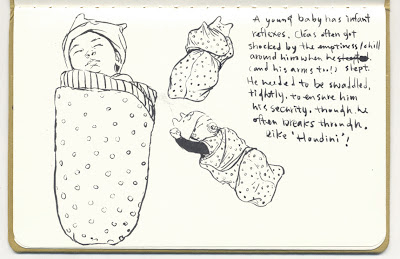 A young baby has infant
reflexes. Cleas often got
shocked by the emptiness/chill
around him when he
(and his arms too!) slept.
He needed to be swaddled,
tightly, to ensure him
his security, though he
often breaks through,
like "Houdini"!